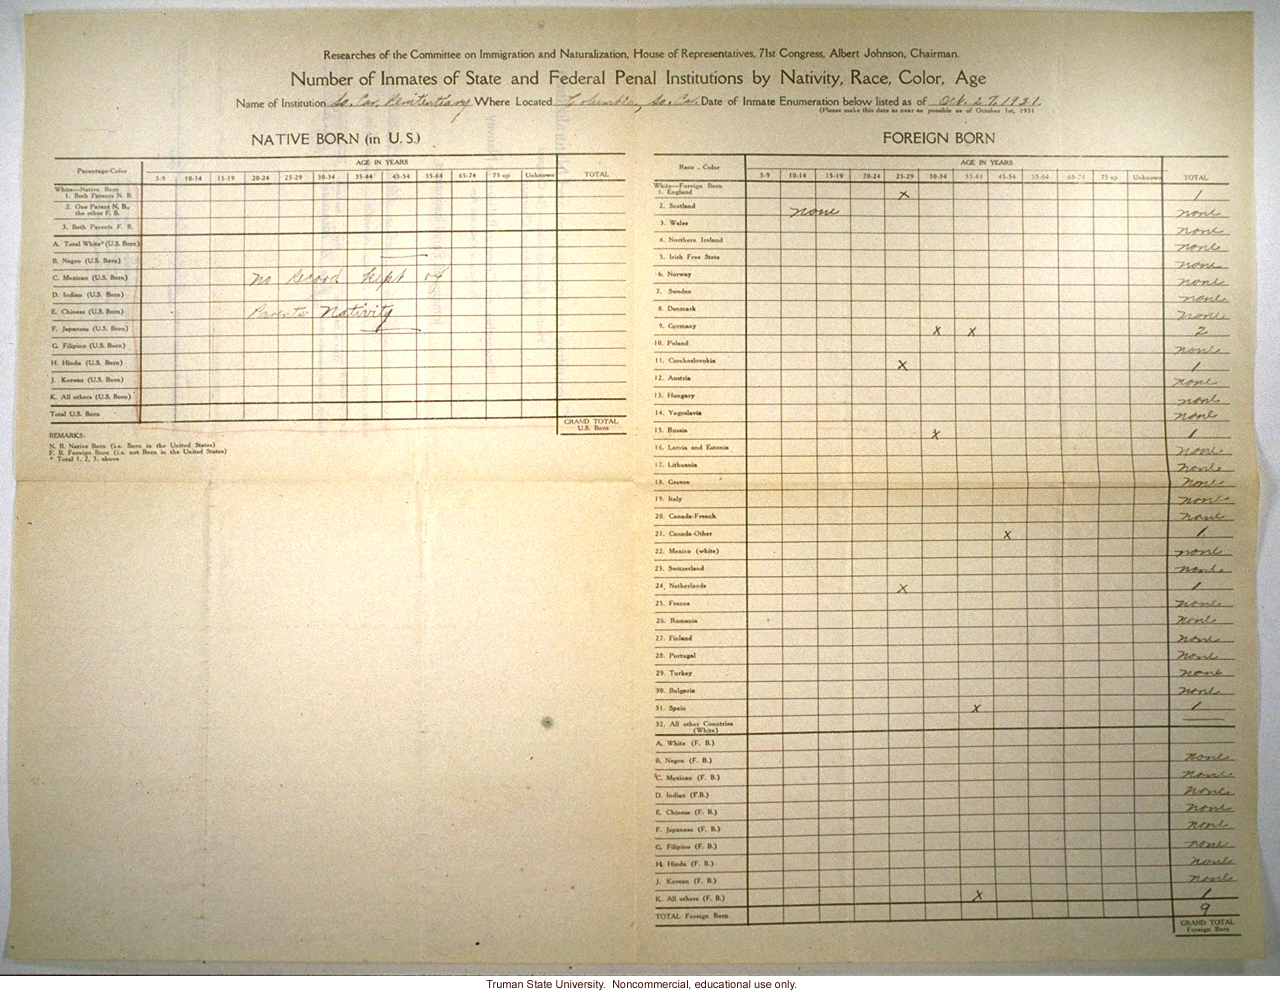 Researches of the Committee on Immigration and Naturalization, House of Representatives, 71st Congress, Albert Johnson, Chairman.
Number of Inmates of State and Federal Penal Institutions by Nativity, Race, Color, Age
Name of Institution So. Car. Penitentiary Where Located Columbia, So. Car. Date of Inmate Enumeration below listed as of Oct. 27, 1931.
(Please make this date as near as possible as of October 1st, 1931
NATIVE BORN (in U. S.)
Parentage-Color
AGE IN YEARS
5-9 10-14 15-19 20-24 25-29 30-34 35-44 45-54 55-64 65-74 75 up Unknown TOTAL
White—Native Born
1. Both Parents N. B.
2. One Parent N. B.,
the other F. B.
3. Both Parents F. B.
A. Total White* (U.S. Born)
B. Negro (U.S. Born)
C. Mexican (U.S. Born) no record kept of
D. Indian (U.S. Born)
E. Chinese (U.S. Born) Parents Nativity
F. Japanese (U.S. Born)
G. Filipino (U.S. Born)
H. Hindu (U.S. Born)
J. Korean (U.S. Born)
K. All others (U.S. Born)
Total U.S. Born
GRAND TOTAL
U.S. Born
REMARKS:
N. B. Native Born (i.e. Born in the United States)
F. B. Foreign Born (i.e. not Born in the United States)
* Total 1, 2, 3, above
FOREIGN BORN
Race - Color
AGE IN YEARS
5-9 10-14 15-19 20-24 25-29 30-34 35-44 45-54 55-64 65-74 75 up Unknown TOTAL
White—Foreign Born
1. England x 1
2. Scotland none none
3. Wales none
4. Northern Ireland none
5. Irish Free State none
6. Norway none
7. Sweden none
8. Denmark none
9. Germany x x 2
10. Poland none
11. Czechoslovokia x 1
12. Austria none
13. Hungary none
14. Yugoslavia none
15. Russia x 1
16. Latvia and Estonia none
17. Lithuania none
18. Greece none
19. Italy none
20. Canada-French none
21. Canada-Other x 1
22. Mexico (white) none
23. Switzerland none
24. Netherlands x 1
25. France none
26. Romania none
27. Finland none
28. Portugal none
29. Turkey none
30. Bulgaria none
31. Spain x 1
32. All other Countries
(White)
A. White (F. B.)
B. Negro (F. B.) none
C. Mexican (F. B.) none
D. Indian (F.B.) none
E. Chinese (F. B.) none
F. Japanese (F. B.) none
G. Filipino (F. B.) none
H. Hindu (F. B.) none
J. Korean (F. B.) none
K. All others (F. B.) x 1
TOTAL Foreign Born 9
GRAND TOTAL
Foreign Born
Truman State University. Noncommercial, educational use only.